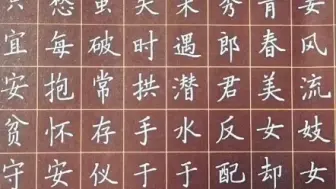 风流妓女
青春美女却
秀郎君反配
未遇潜水于
失时拱手于
虽破常存仪
愁每抱怀安
只宜安贫守